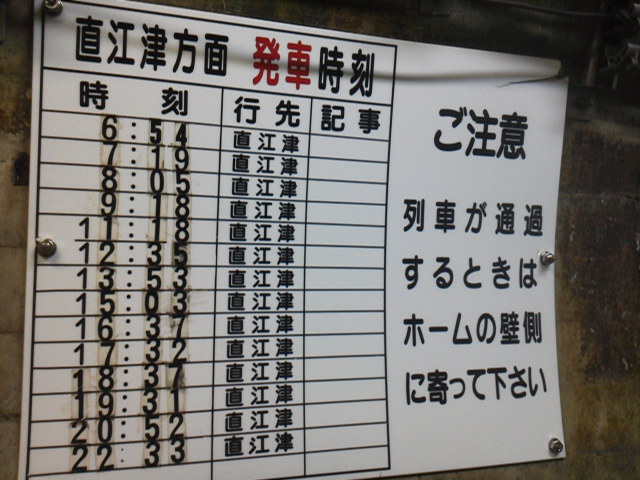 直江津方面 発車時刻
時刻 行先 記事
6:54 直江津
7:19 直江津
8:05 直江津
9:18 直江津
11:18 直江津
12:35 直江津
13:53 直江津
15:03 直江津
16:37 直江津
17:32 直江津
18:37 直江津
19:31 直江津
20:52 直江津
22:33 直江津
ご注意
列車が通過
するときは
ホームの壁側
に寄って下さい